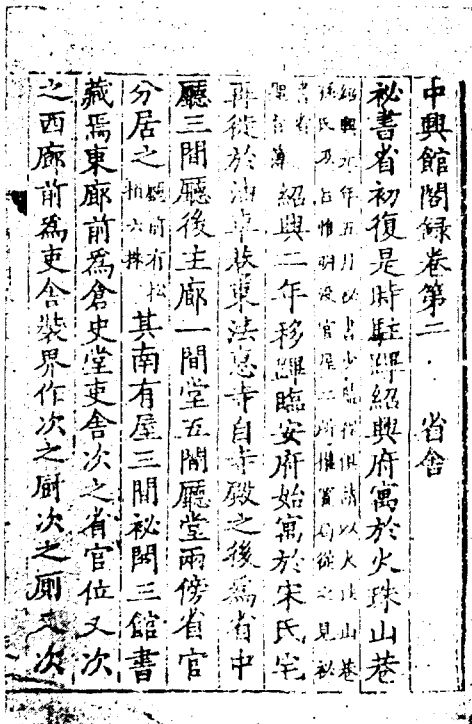 中興館閣録卷第二　省舍
祕書省初復是時駐蹕紹興府寓於火珠山巷
紹興元年五月以書少監程俱請以火珠山巷
孫氏及吕惟明没官屋二所權置局從之見祕
書省
紹興二年移蹕臨安府始寓於宋氏宅
再徙於油車巷東法惠寺自寺殿之後爲省中
廳三間廳後主廊一間堂五間廳堂兩傍省官
分居之廳前有松
柏六株其南有屋三間祕閣三館書
藏焉東廊前爲倉史堂吏舍次之省官位又次
之西廊前爲吏舍裝界作次之厨次之厠又次